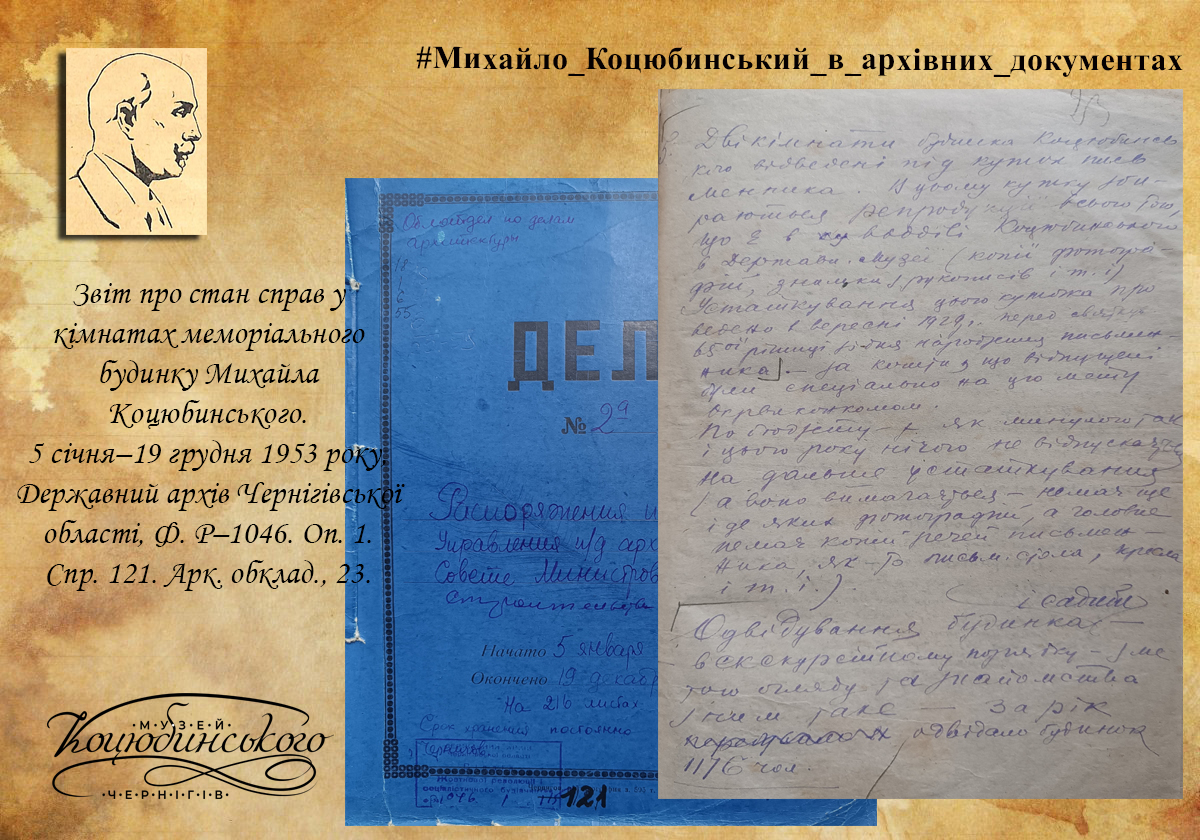 #Михайло_Коцюбинський_в_архівних_документах
Звіт про стан справ у
кімнатах меморіального
будинку Михайла
Коцюбинського.
5 січня–19 грудня 1953 року.
Державний архів Чернігівської
області, Ф. Р–1046. Оп. 1.
Спр. 121. Арк. обклад., 23.
МУЗЕЙ
Коцюбинського
ЧЕРНІГІВ
Облотдел по делам
архитектуры
ДЕЛ
№ 2а
Распоряжения и
Управления п/д арх
Совете Министров
строительства
Начато 5 января
Окончено 19 декабр
На 216 листах
Срок хранения постоянно
121
Дві кімнати будинка Коцюбинсь
кого відведені під куток пись
менника. В цьому кутку зби-
раються репродукції всього того,
що є в відділі Коцюбинського
в Держав. Музеї (копії фотогра
фій, знимки з рукописів і т. і)
Устаткування цього кутка про
ведено в вересні 1929 р. перед святкув
65ої річниці з дня народження письмен-
ника – за кошти, що відпущені
були спеціально на цю мету
Окрвиконкомом.
По бюджету як минулого так
і цього року нічого не відпускалось
на дальше устаткування
(а воно вимагається – немає ще
і деяких фотографій, а головне
немає копій речей письмен-
ника, як-то письм. стола, крісла
і т. і.)
і садиби
Одвідування будинка –
в екскурсійному порядку – з ме
тою огляду та знайомства
з ним таке – за рік
одвідало будинок
1176 чол.